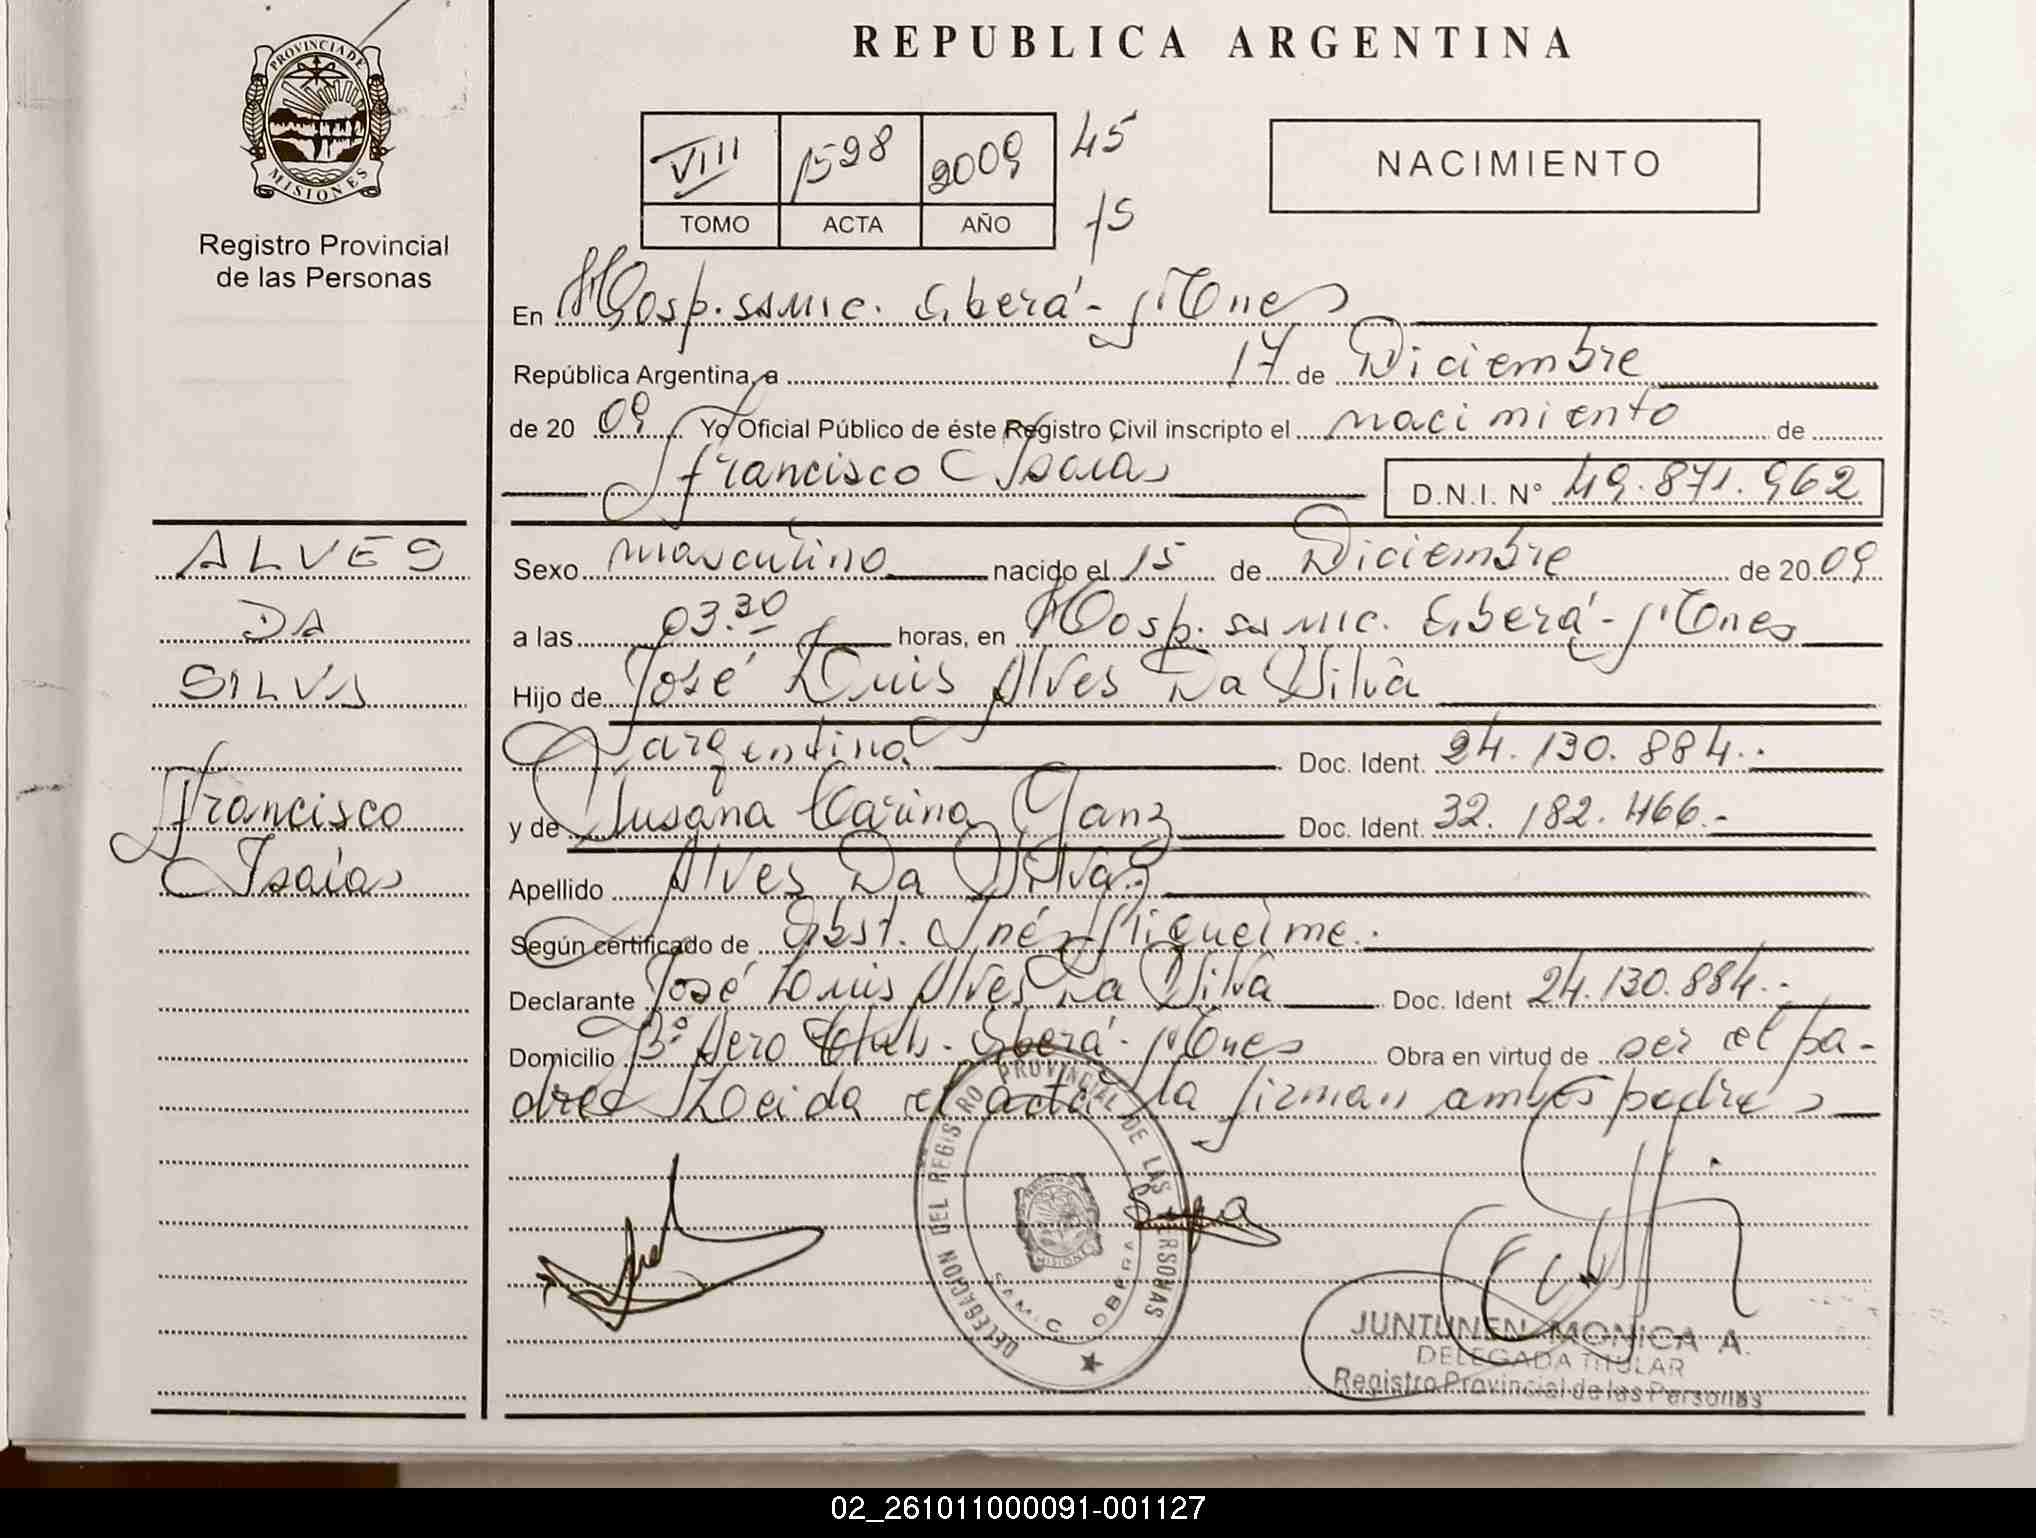 REPUBLICA ARGENTINA
PROVINCIA DE
MISIONES
Registro Provincial
de las Personas
VIII 1598 2009 45
TOMO ACTA AÑO 15
NACIMIENTO
En Hosp. SAMIC. Oberá - Mnes
República Argentina, a 17 de Diciembre
de 20 09 Yo Oficial Público de éste Registro Civil inscripto el nacimiento de
Francisco Isaías D.N.I. N° 49.871.962
ALVES
DA
SILVA
Francisco
Isaías
Sexo masculino nacido el 15 de Diciembre de 20 09
a las 03.30 horas, en Hosp. SAMIC. Oberá - Mnes
Hijo de José Luis Alves Da Silva
argentina Doc. Ident. 24.130.884.-
y de Susana Carina Ganz Doc. Ident. 32.182.466.-
Apellido Alves Da Silva
Según certificado de Obst. Inés
Declarante José Luis Alves Da Silva Doc. Ident 24.130.884.-
Domicilio B° Aero Club - Oberá - Mnes Obra en virtud de ser el pa-
dre Leida el acta la firman ambos padres
DELEGACION DEL REGISTRO PROVINCIAL DE LAS PERSONAS
MISIONES
S.A.M.I.C. OBERA
JUNTUNEN MONICA A.
DELEGADA TITULAR
Registro Provincial de las Personas
02_261011000091-001127